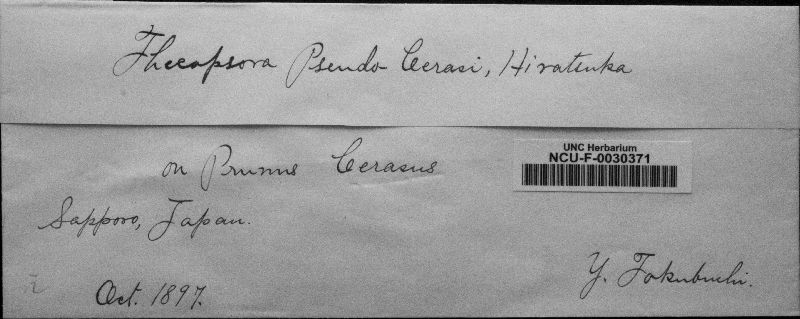 Thecopsora Pseudo-Cerasi, Hiratsuka
on Prunus Cerasus
UNC Herbarium
NCU-F-0030371
Sapporo, Japan.
Y. Tokubuchi.
Oct. 1897.